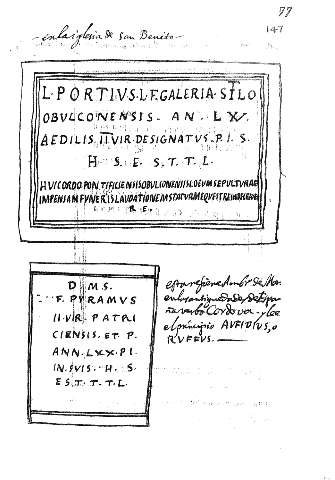 77
147
en la iglesia de San Benito
L. PORTIVS. L. F. GALERIA. STILO
OBVLCONENSIS. AN. LXV.
AEDILIS. IIVIR. DESIGNATVS. P. I. S.
H. S. E. S. T. T. L.
HVIC ORDO PONTIFICIENSIS OBVLCONENSIS LOCVM SEPVLTVRAE
IMPENSAM FVNERIS LAVDATIONEM STATVAM EQVESTREM
R. E.
D. M. S.
F. PYRAMVS
IIVIR. PATRI
CIENSIS. ET. P.
ANN. LXX. PI.
IN. SVIS. H. S.
E S. T. T. L.
esta refiere Ambr. de Mor.
en las antiguedades de Espa
ña verbo Cordova. y lee
el principio AVFIDIVS, o
RVFFVS.